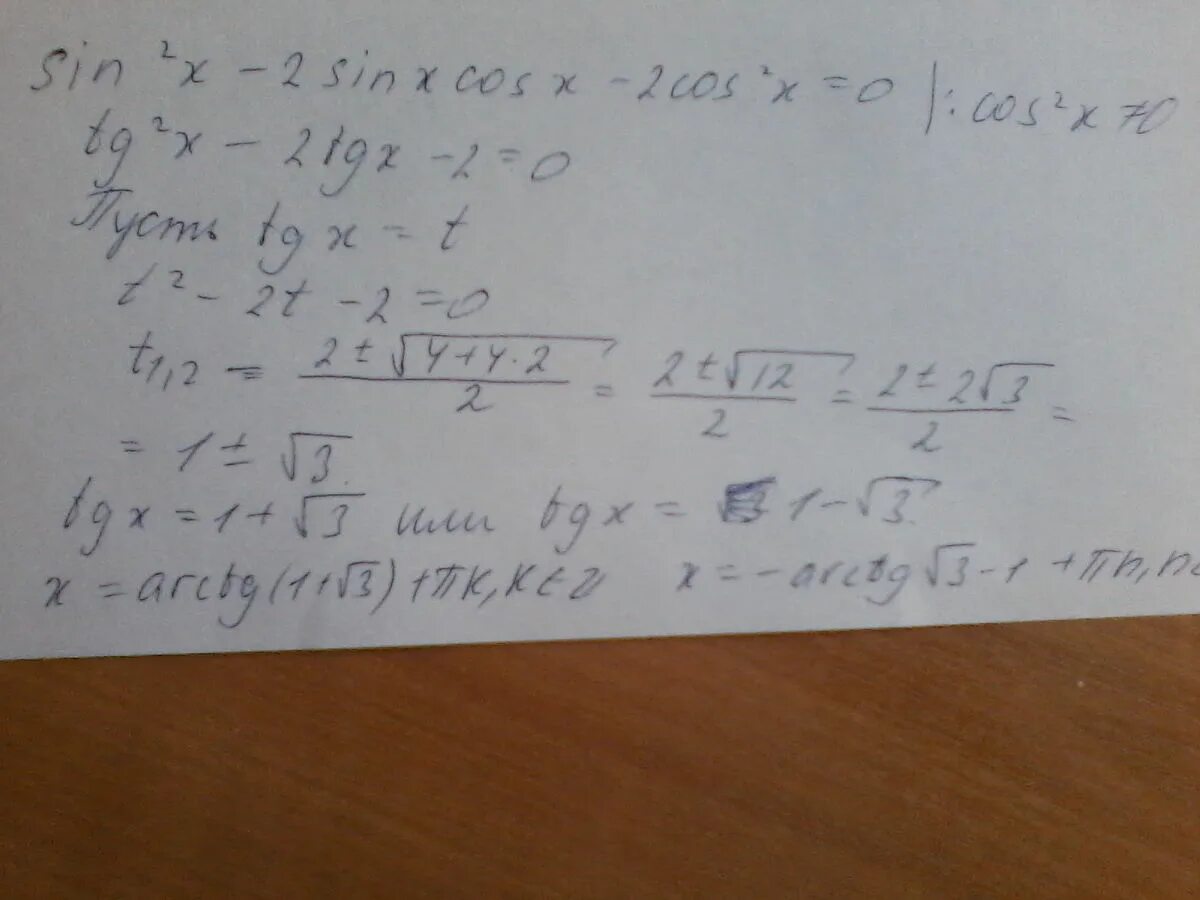 sin²x - 2 sin x cos x - 2cos²x = 0 |: cos²x ≠ 0
tg²x - 2tgx - 2 = 0
Пусть tg x = t
t² - 2t - 2 = 0
t₁,₂ = (2 ± √(4+4·2))/2 = (2 ± √12)/2 = (2 ± 2√3)/2 =
= 1 ± √3
tg x = 1 + √3 или tg x = 1 - √3
x = arctg(1+√3) + πk, k ∈ Z x = -arctg √3 - 1 + πn, n ∈